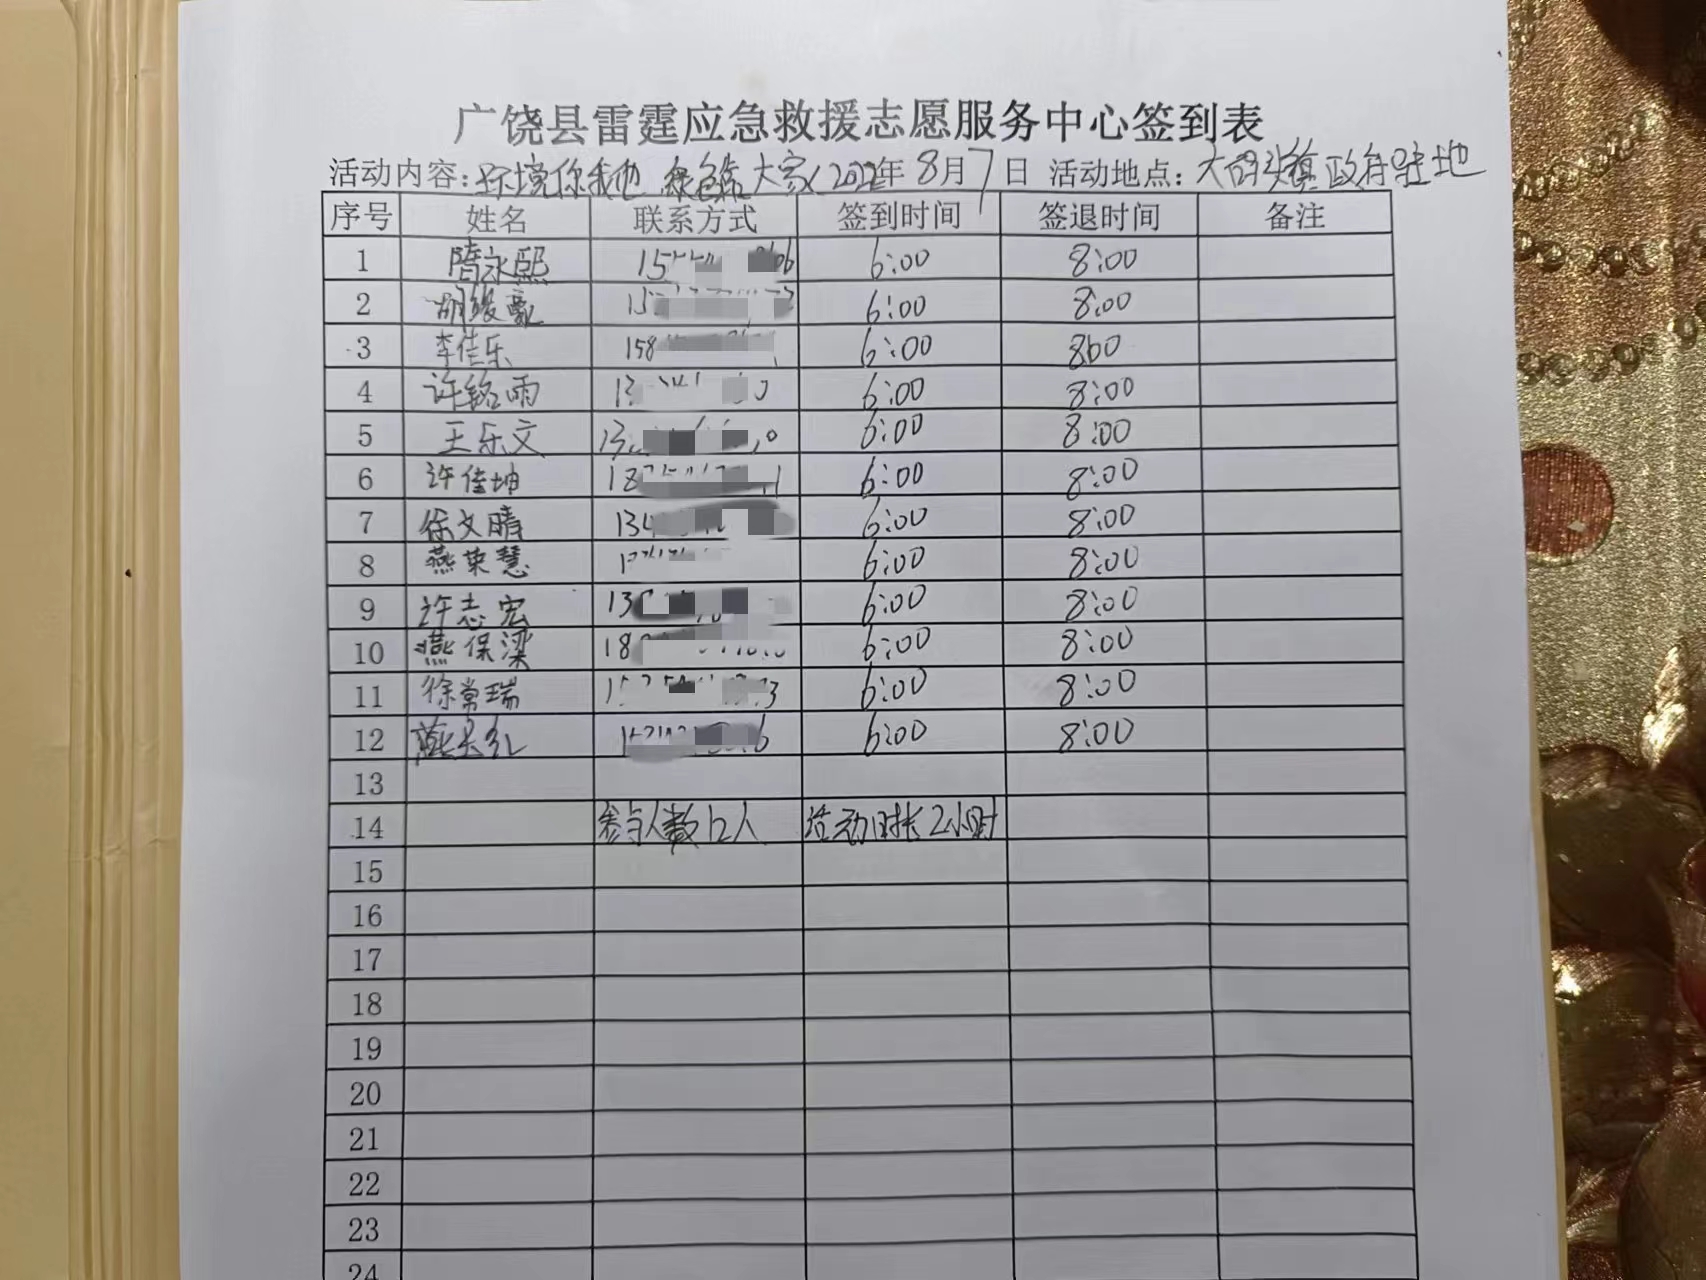 广饶县雷霆应急救援志愿服务中心签到表
活动内容:环境你我他 绿色靠大家 2022年8月7日 活动地点:大码头镇政府驻地
序号 姓名 联系方式 签到时间 签退时间 备注
1 隋永熙 15 6:00 8:00
2 胡俊豪 15 6:00 8:00
3 李佳乐 158 6:00 8:00
4 许铭雨 13 6:00 8:00
5 王乐文 13 6:00 8:00
6 许佳坤 18 6:00 8:00
7 徐文晴 134 6:00 8:00
8 燕荣慧 6:00 8:00
9 许志宏 13 6:00 8:00
10 燕保梁 18 6:00 8:00
11 徐常瑞 6:00 8:00
12 6:00 8:00
13
14 参与人数12人 活动时长2小时
15
16
17
18
19
20
21
22
23
24